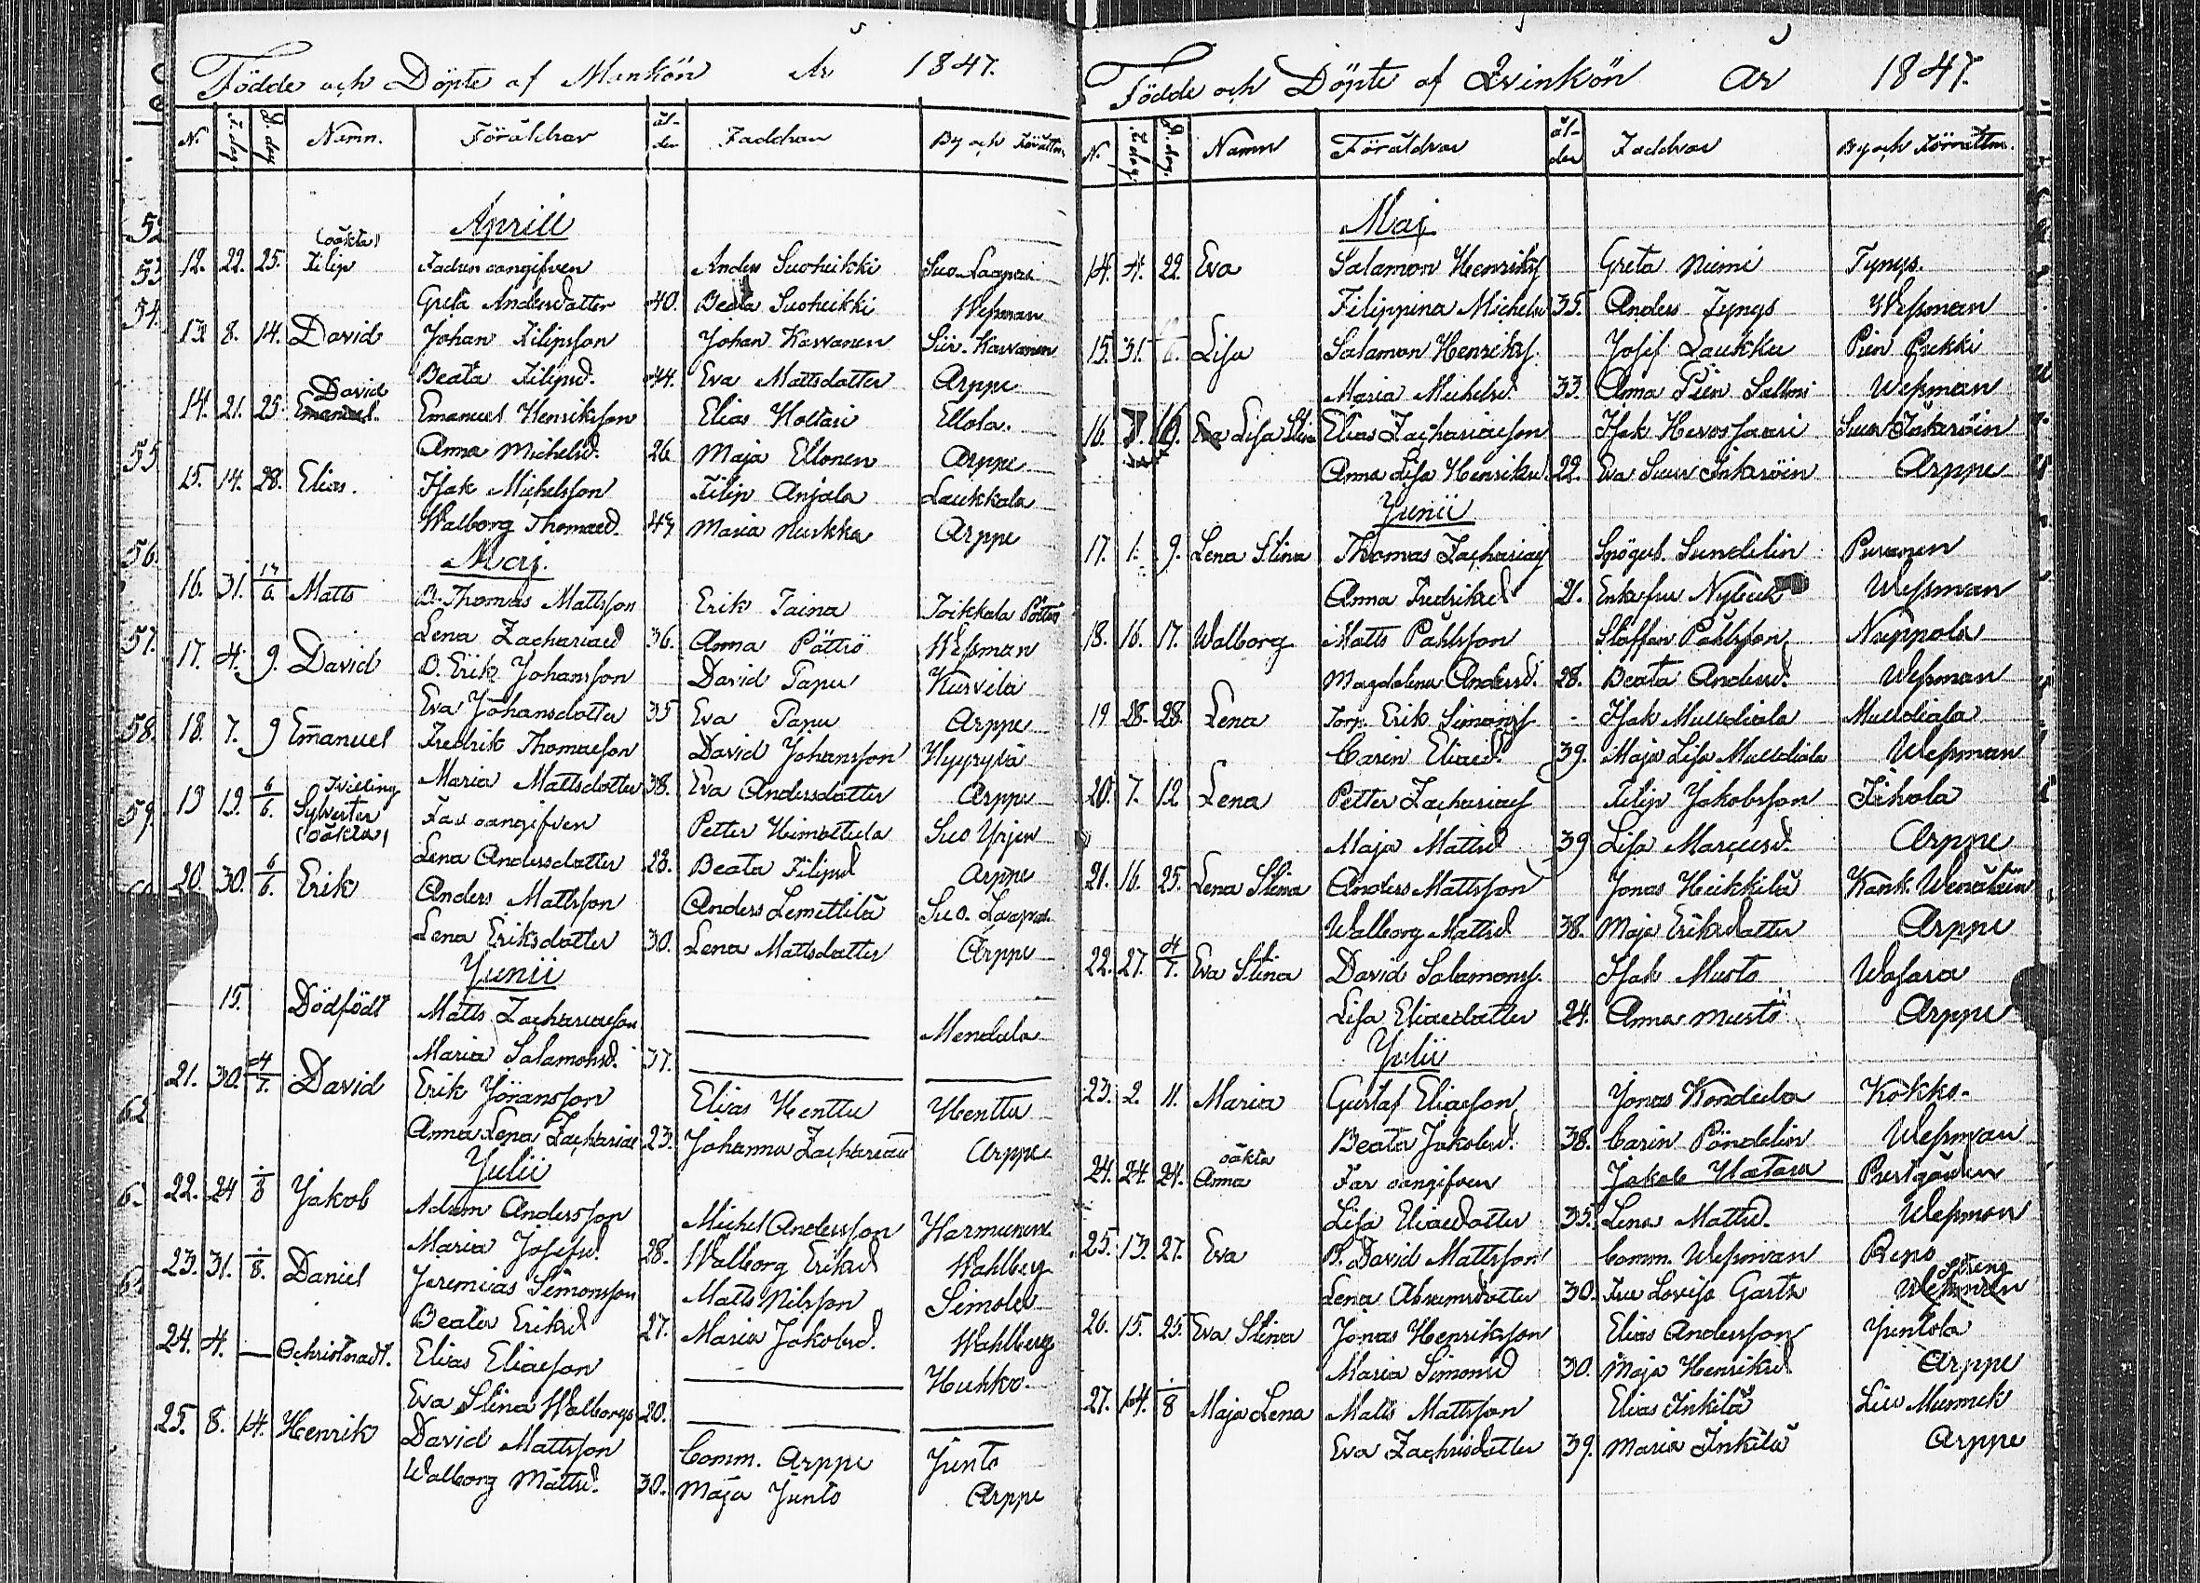 Födde och Döpte af Mankön År 1847.
N. F. dag. D. dag Namn. Föräldrar ål-der Faddrar By och Förrättn.
Aprill
(oäkta)
12. 22. 25. Filip Fadren oangifven Anders Suoheikki Suo Laapas
Greta Andersdatter 40. Beata Suoheikki Weßman
13. 8. 14. David Johan Filipsson Johan Karvanen Siir. Karvanen
Beata Filipsd. 44. Eva Mattsdatter Arppe
David
14. 21. 25. Emanuel. Emanuel Henriksson Elias Holtari Ellola.
Anna Michelsd. 26 Maja Ellonen Arppe
15. 14. 28. Elias. Isak Michelsson Filip Anjala Laukkala
Walborg Thomaed. 43 Maria Nurkka Arppe
Maj.
16. 31. 13/6. Matts B. Thomas Mattsson Erik Taina Toikkala
Lena Zachariaed 36. Anna Pöttrö Weßman
17. 4. 9. David D. Erik Johansson David Papu Kurvila
Eva Johansdatter 35 Eva Papu Arppe
18. 7. 9 Emanuel Fredrik Thomaeson David Johansson Hyyrylä
Maria Mattsdatter 38. Eva Andersdatter Arppe
Tvilling
19 19. 6/6. Sylvester Far oangifven Petter Himottula Suo Yrjen
(oäkta) Lena Andersdatter 28. Beata Filipsd Arppe
20. 30. 6/6. Erik Anders Mattsson Anders Lemettilä Suo. Laapas
Lena Eriksdatter 30. Lena Mattsdatter Arppe
Junii
15. Dödfödt Matts Zachariaeson Mendala
Maria Salamonsd. 37.
21. 30. 4/7. David Erik Jöransson Elias Henttu Henttu
Anna Lena Zachariae 23. Johanna Zachariaed Arppe
Julii
22. 24 1/8 Jakob Adam Andersson Michel Andersson Harmunen
Maria Josefsd. 28. Walborg Eriksd Wahlberg
23. 31. 1/8. Daniel Jeremias Simonsson Matts Nilsson Simola
Beata Eriksd 27. Maria Jakobsd. Wahlberg
24. 4. — Ochristnadt. Elias Eliaeson Hukko.
Eva Stina Walborgs 20.
25. 8. 14. Henrik David Mattsson Comm. Arppe Junto
Walborg Mattsd. 30. Maja Junto Arppe
Födde och Döpte af Qvinkön År 1847.
N. F. dag. D. dag. Namn Föräldrar ål-der Faddrar By och Förrättn.
Maj
14. 4. 22. Eva Salamon Henriks Greta Niemi Tyngs.
Filippina Michelsd 35. Anders Tyngs Weßman
15. 31. 6. Lisa Salamon Henriks. Josef Laukku Pien Pekki
Maria Michelsd. 33. Anna Pien Weßman
16. Eva Lisa Stina Elias Zachariaeson Isak Hevossaari Suur Inkeröin
Anna Lisa Henriksd. 22. Eva Suur Inkeröin Arppe
Junii
17. 1. 9. Lena Stina Thomas Zachariaes Sundelin Puranen
Anna Fredriksd 21. Enkefru Weßman
18. 16. 17. Walborg Matts Påhlsson Staffan Påhlsson Nuppola
Magdalena Andersd. 28. Beata Andersd. Weßman
19 28. 28. Lena Torp. Erik Simonss - Isak Muldiala Muldiala
Carin Eliaed. 39. Maja Lisa Muldiala Weßman
20. 7. 12 Lena Petter Zachariaes Filip Jakobsson Sihola
Maja Mattsd 39 Lisa Marcusd. Arppe
21. 16. 25. Lena Stina Anders Mattsson Jonas Heikkilä Kank. Wenäläin
Walborg Mattsd 38. Maja Eriksdatter Arppe
22. 27. 4/7. Eva Stina David Salamonss. Isak Musto Wasara
Lisa Eliaedatter 24. Anna Musto Arppe
Julii
23. 2. 11. Maria Gustaf Eliaeson Jonas Kondula Kokko.
Beata Jakobsd. 38. Carin Pöndelin Weßman
oäkta
24. 24. 24. Anna Far oangifven Jakob Hatara Prestgården
Lisa Eliaedatter 35. Lena Mattsd. Weßman
25. 13. 27. Eva B. David Mattsson Comm. Weßman Repo
Lena Abramsdatter 30. Fru Lovisa Garth Weßman
26. 15. 25. Eva Stina Jonas Henriksson Elias Andersson Juntola
Maria Simonsd 30. Maja Henriksd Arppe
27. 14. 1/8 Maja Lena Matts Mattsson Elias Inkilä Munnuk
Eva Zachrisdatter 39. Maria Inkilä Arppe